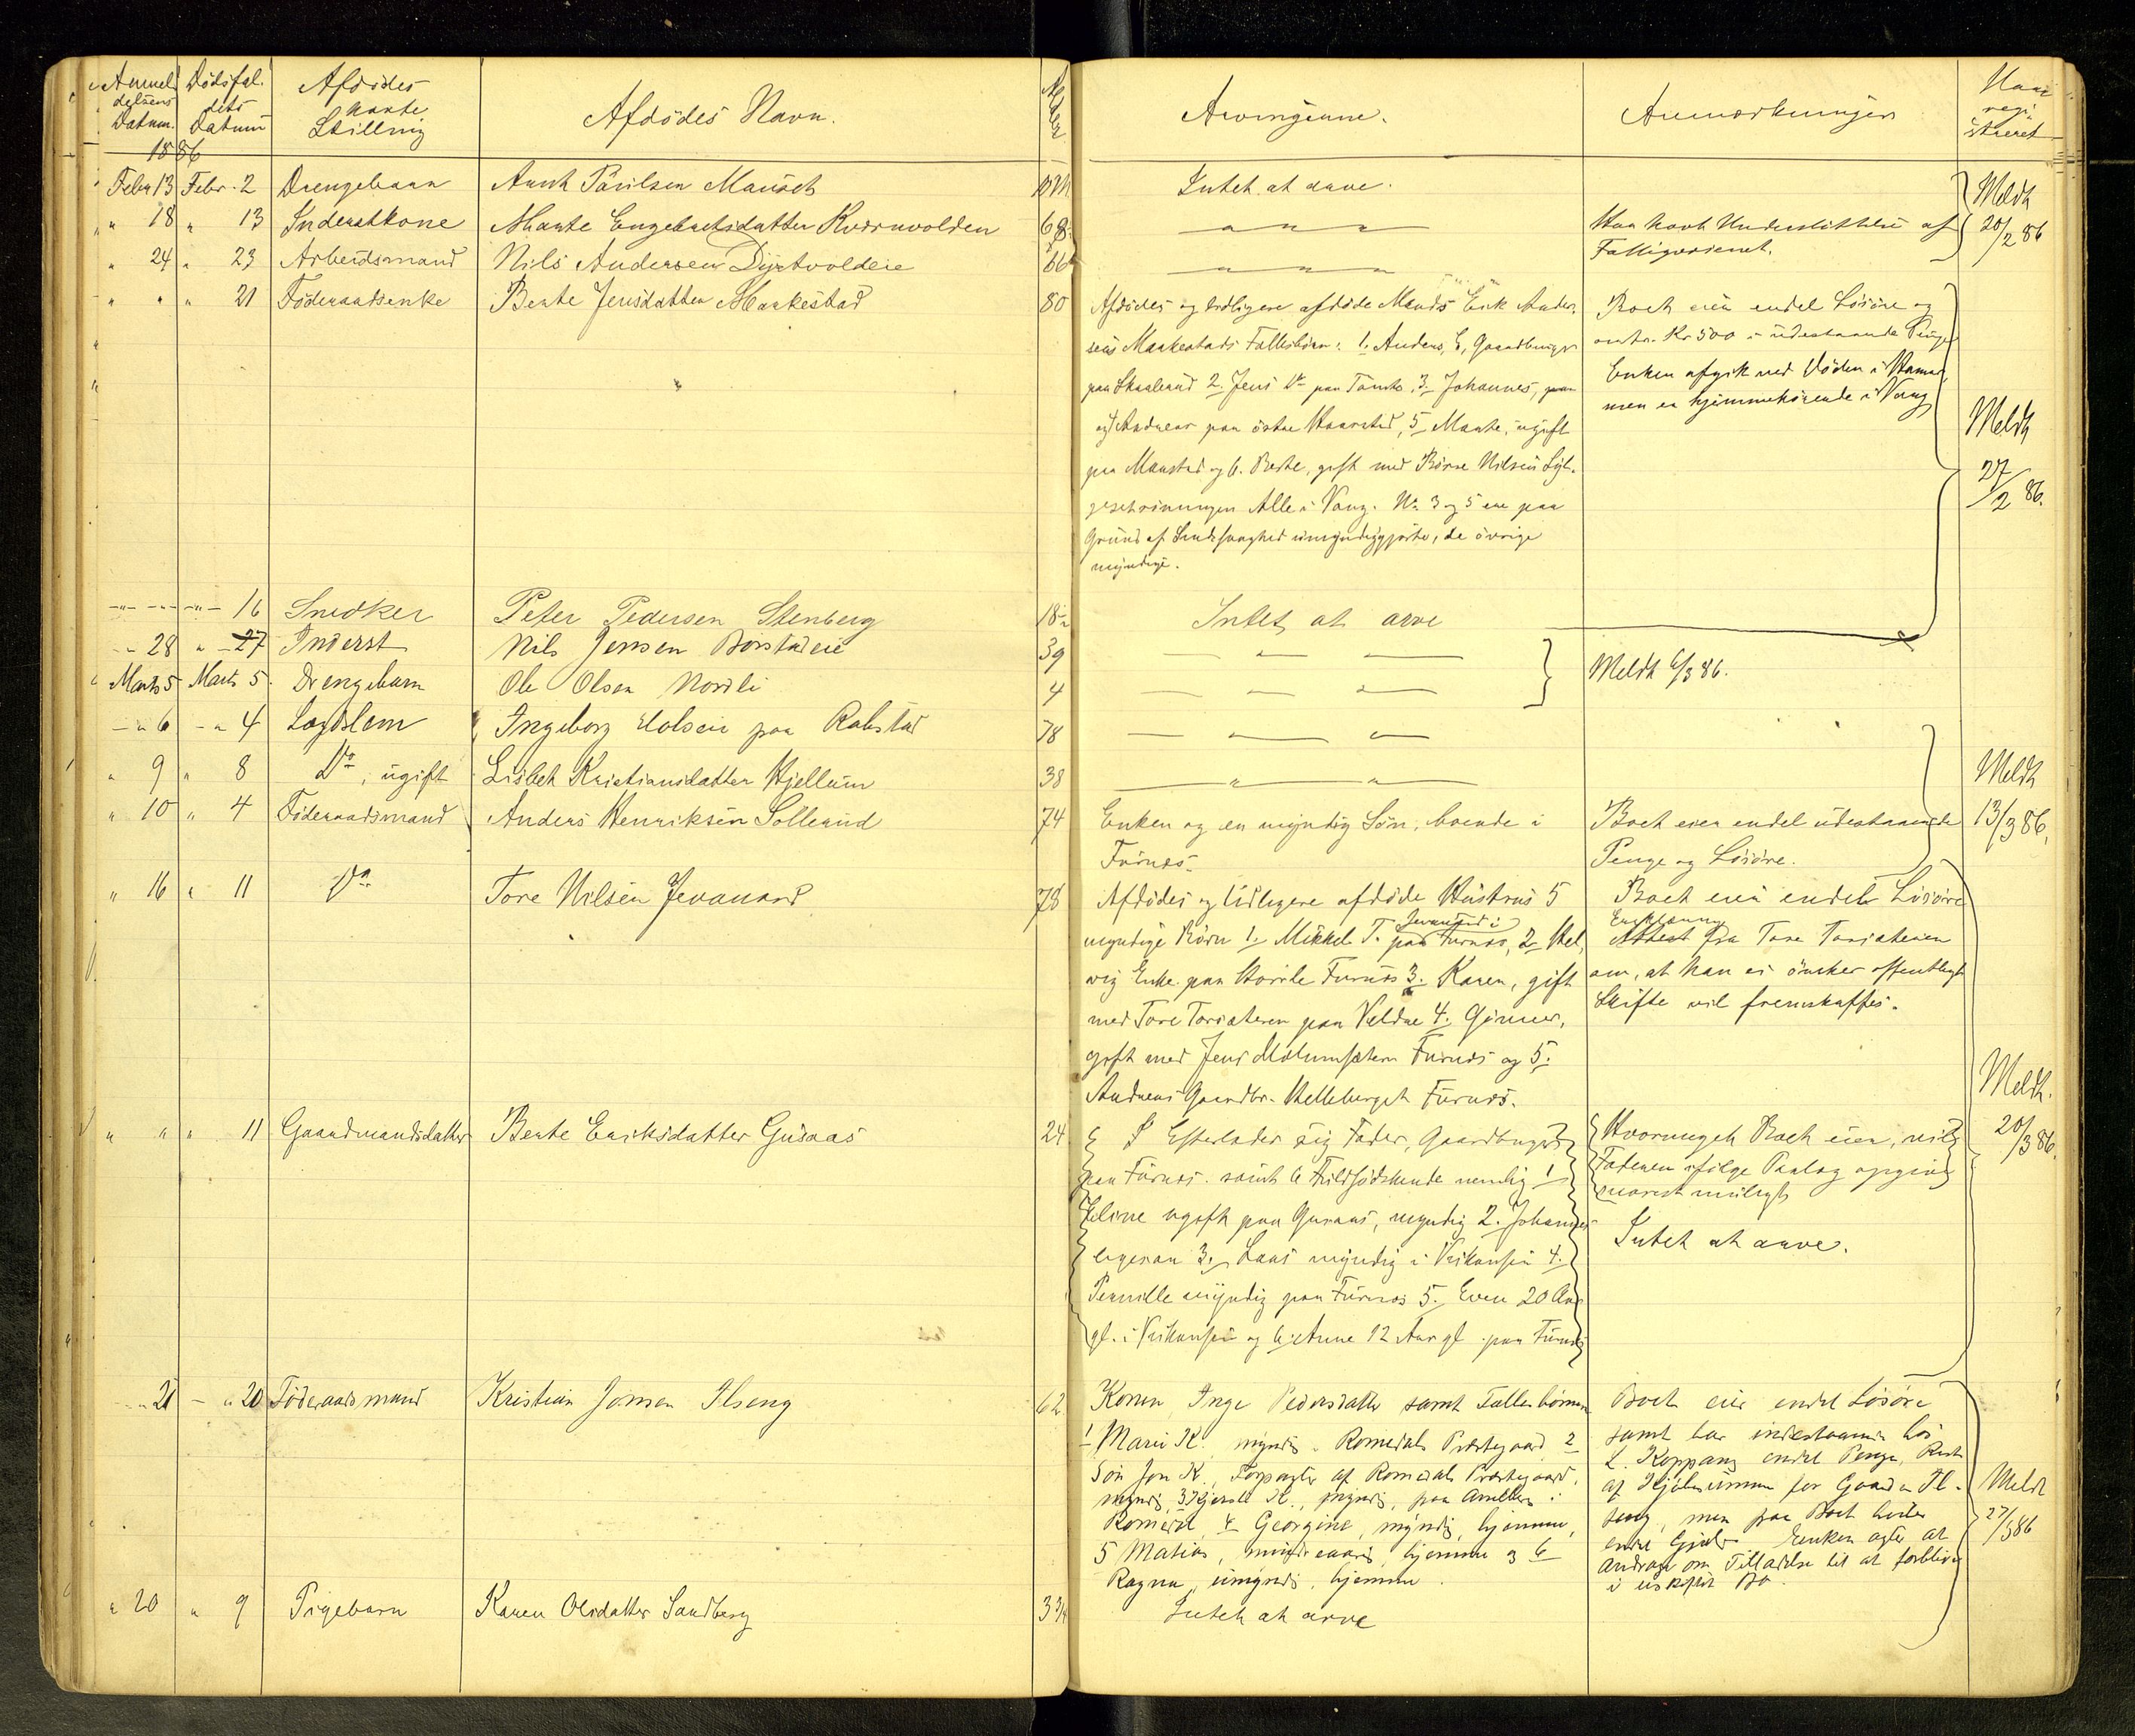 Anmel
delsens
Datum.
Dødsfal-
dets
Datum
Afdödes
Stilling
Afdödes Navn.
Alder
Arvingerne.
Anmærkninger
Naar
regi
streret
1886
Febr 13 Febr. 2 Drengebarn
Intet at arve.
Meldt
" 18 " 13 Inderstkone Marte Engebretsdatter Kværnvolden 68
" " "
Har havt Understöttelse af
Fattigvæsenet.
20/2 86
" 24 " 23 Arbeidsmand Nils Andersen
" " "
" " " 21 Föderaadsenke Berte Jensdatter Maukestad 80
Afdödes og tidligere afdöde Mands Erik Ander-
sens Maukestads Fællesbörn: 1. Anders E, Gaardbruger
paa 2. Jens Do paa 3. Johannes,
og 4 Andreas paa östre 5 Marte, ugift
paa og 6. Berte, gift med Nilsen
Alle i Vang. No 3 og 5 ere paa
Grund af Sindssvaghed umyndiggjorte, de övrige
myndige.
Boet eier endel Lösöre og
omtr. Kr 500 i udestaaende Penge
Enken afgik ved Döden i Hamar,
men er hjemmehörende i Vang
Meldt
27/2 86.
-"- -"- 16 Snedker Peter Pedersen Stenberg 18
Intet at arve
- 28 " - 27 Inderst Nils Jensen Börstadeie 39
— " —
Marts 5 Marts 5 Drengebarn Ole Olsen Nordli 4
— " —
Meldt 6/3 86.
- " 6 - " 4 Lægdslem Ingeborg paa Rabstad 78
" 9 " 8 Do, ugift Lisbet Kristiansdatter Hjellum 38
— " — " —
Meldt
" 10 " 4 Föderaadsmand Anders Henriksen Sollerud 74
Enken og en myndig Sön, boende i
Furnes.
Boet eier endel udestaaende
Penge og Lösöre.
13/3 86,
" 16 " 11 Do Tore Nilsen Jevanord 78
Afdödes og tidligere afdöde Hustrus 5
myndige Börn 1. Mikkel T. paa Furnes, 2. Hel
vig Enke paa Furnes 3. Karen, gift
med Tore Torsæteren paa Veldre 4.
gift med Jens Furnes og 5.
Andreas Gaardbr. Helleberget Furnes.
Boet eier endel Lösöre
Erklæring
Attest fra Tore Torsæteren
om, at han ei önsker offentligt
Skifte vil fremskaffes.
Meldt.
" " " 11 Gaardmandsdatter Berte Eriksdatter Gusaas 24
Efterlader sig Fader, Gaardbruger
paa Furnes. samt 6 Fuldsödskende nemlig 1
Eline ugift paa Gusaas, myndig 2. Johannes
3. Lars myndig i 4.
Pernille myndig paa Furnes 5. Even 20 Aar
gl. i og 6. Anne 12 Aar gl. paa Furnes
Hvorvidt Boet eier, vil
Faderen ifölge Paalæg opgive
snarest muligt
Intet at arve.
20/3 86.
- " 21 - " 20 Föderaadsmand Kristian Jonsen Ilseng 62
Konen Inge Pedersdatter samt Fællesbörnene
1 Marie K. myndig Romedals Præstegaard 2
Sön Jon K., Forpagter af Romedals Præstegaard,
myndig, 3 K., myndig, paa i
Romedal, 4 Georgine, myndig, hjemme,
5 Matias, mindreaarig, hjemme og 6
Ragna, umyndig, hjemme.
Boet eier endel Lösöre
samt har indestaaende hos
L. Koppang endel Penge, Rest
af Kjöbesummen for Gaarden Il-
seng, men paa Boet hviler
endel Gjæld. Enken agter at
andrage om Tilladelse til at forblive
i uskiftet Bo.
Meldt
27/3 86
" 20 " 9 Pigebarn Karen Olsdatter Sandberg 3 3/4
Intet at arve